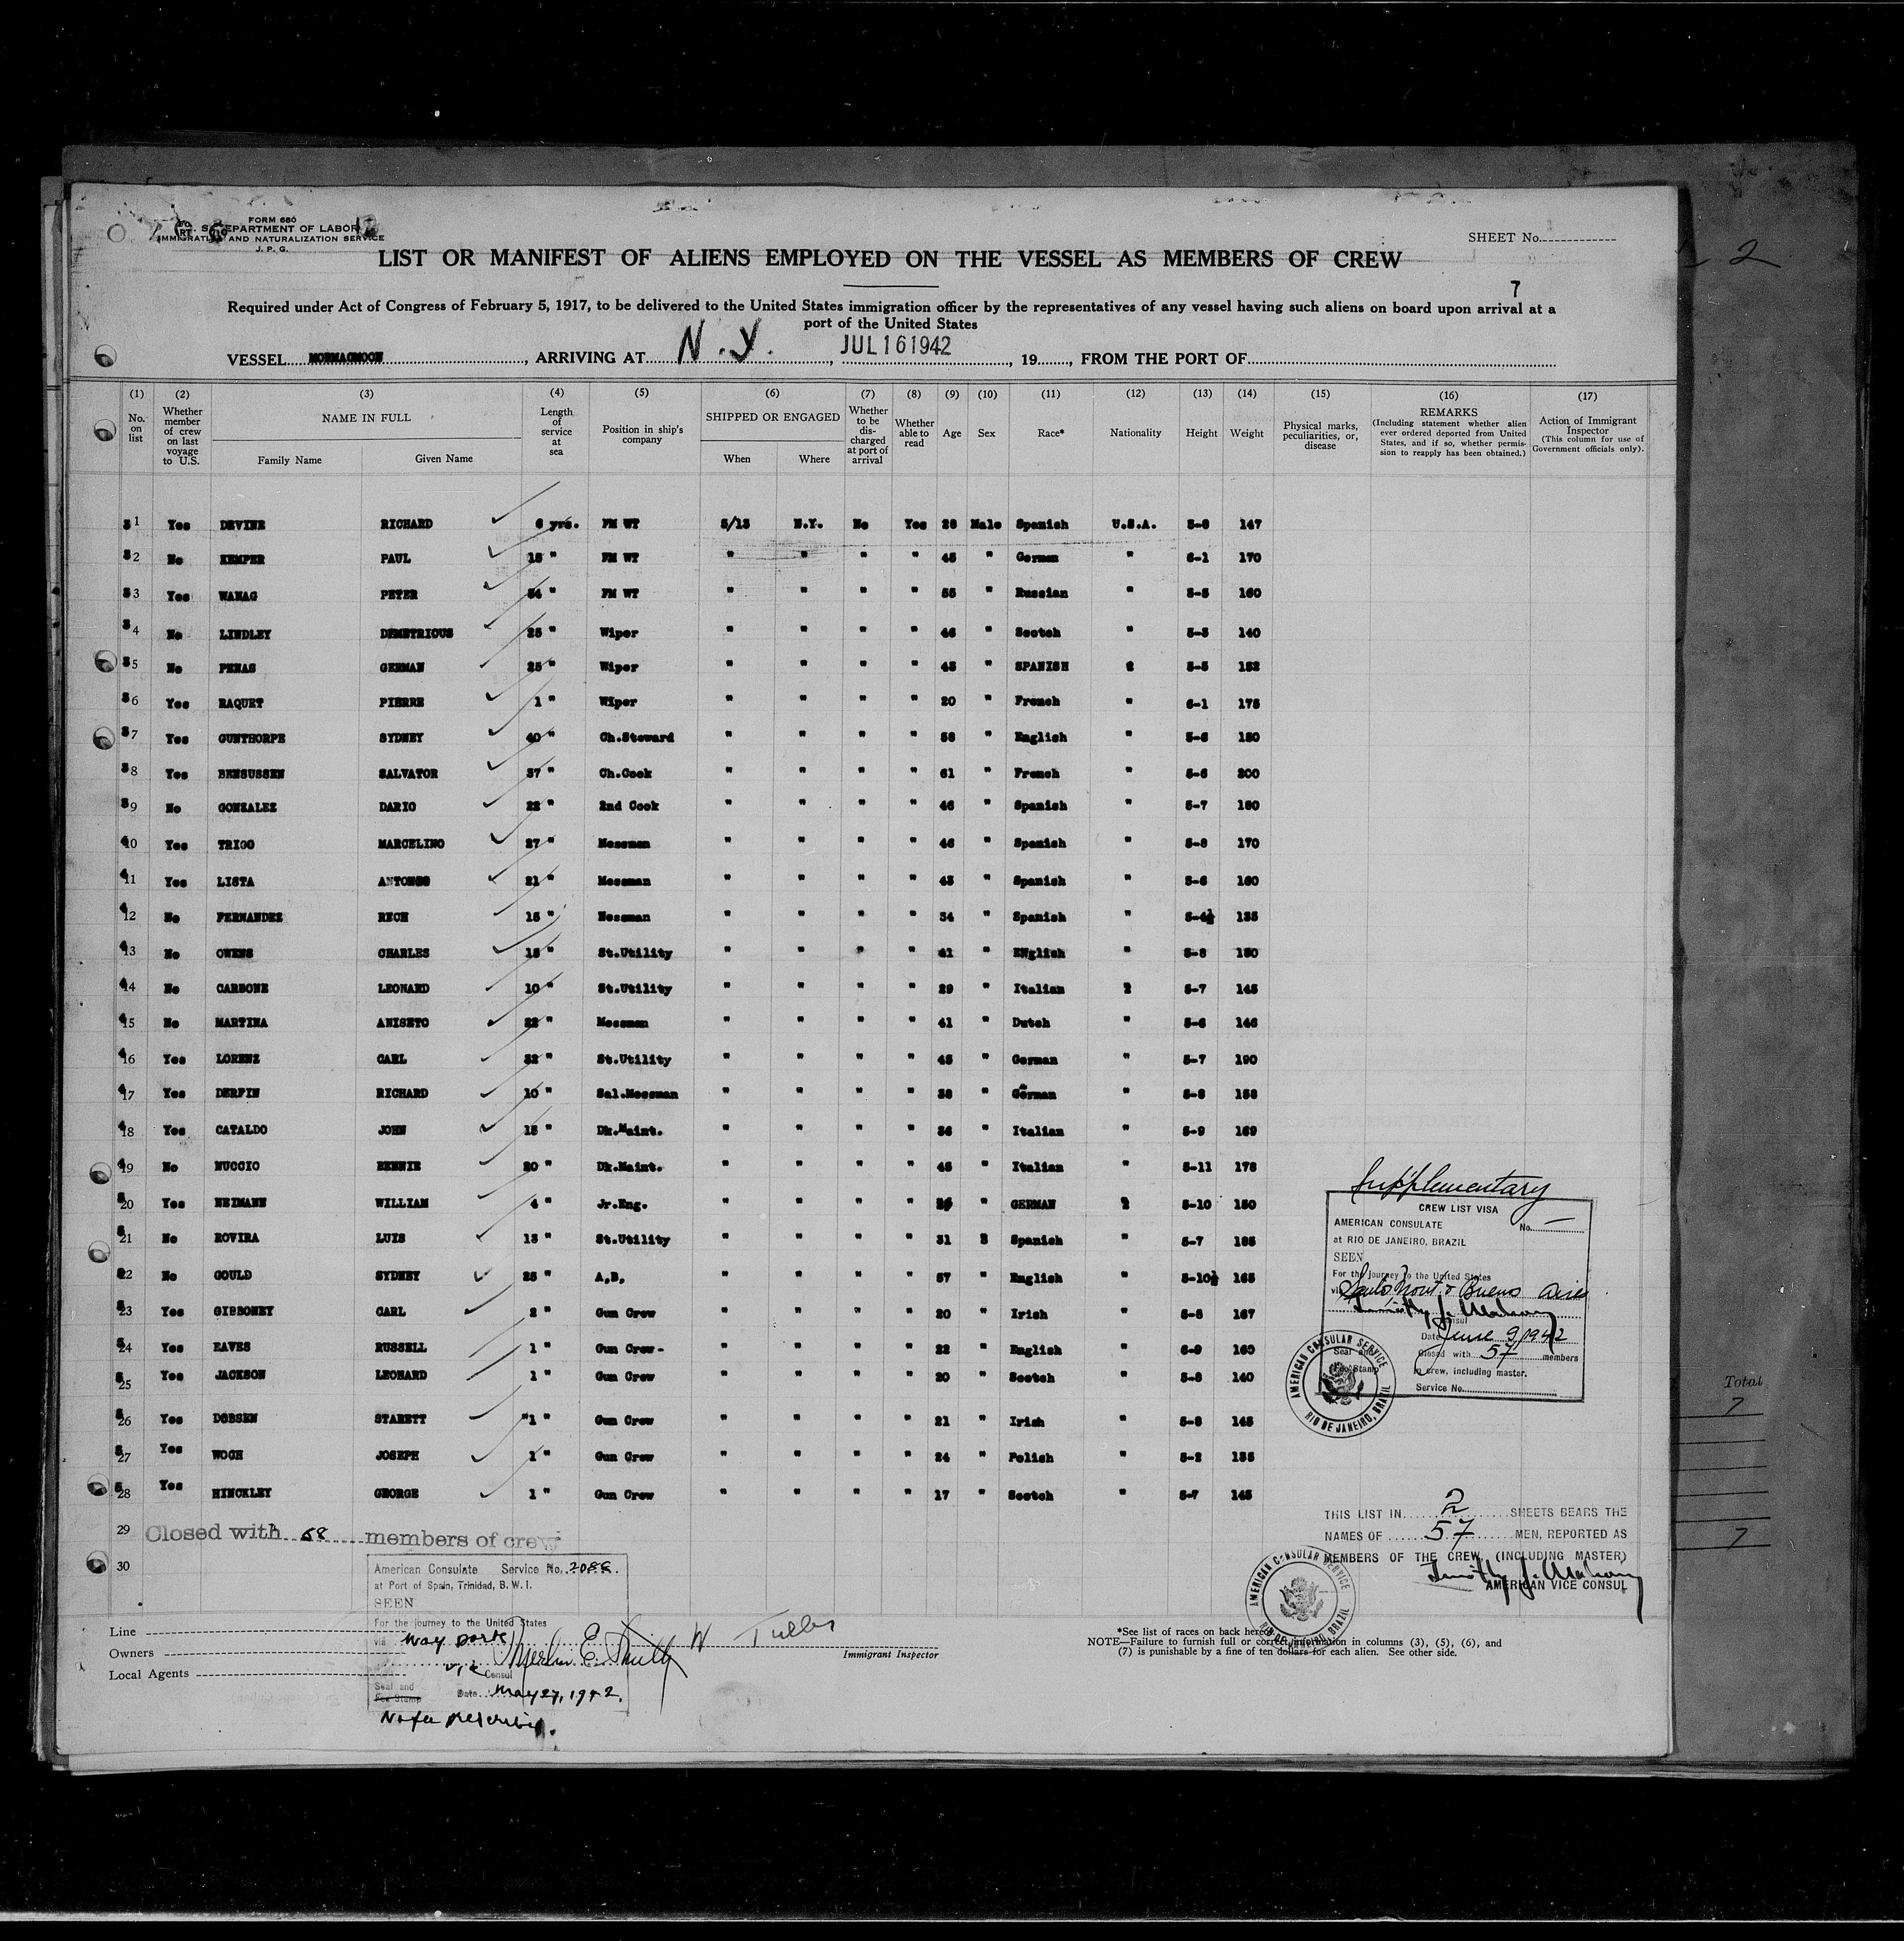 FORM 680
U. S. DEPARTMENT OF LABOR
IMMIGRATION AND NATURALIZATION SERVICE
J. P. G.
SHEET No.
LIST OR MANIFEST OF ALIENS EMPLOYED ON THE VESSEL AS MEMBERS OF CREW
7
2
Required under Act of Congress of February 5, 1917, to be delivered to the United States immigration officer by the representatives of any vessel having such aliens on board upon arrival at a
port of the United States
VESSEL MORMACMOON, ARRIVING AT N.Y., JUL 16 1942, 19, FROM THE PORT OF
(1) (2) (3) (4) (5) (6) (7) (8) (9) (10) (11) (12) (13) (14) (15) (16) (17)
No. on list
Whether member of crew on last voyage to U.S.
NAME IN FULL
Family Name Given Name
Length of service at sea
Position in ship's company
SHIPPED OR ENGAGED
When Where
Whether to be dis-charged at port of arrival
Whether able to read
Age Sex Race* Nationality Height Weight
Physical marks, peculiarities, or, disease
REMARKS
(Including statement whether alien ever ordered deported from United States, and if so, whether permis-sion to reapply has been obtained.)
Action of Immigrant Inspector
(This column for use of Government officials only).
31 Yes DEVINE RICHARD 6 yrs. FM WT 5/13 N.Y. No Yes 28 Male Spanish U.S.A. 5-8 147
32 No KEMPER PAUL 15 " FM WT " " " " 45 " German " 6-1 170
33 Yes WANAG PETER 34 " FM WT " " " " 55 " Russian " 5-5 160
34 No LINDLEY DEMETRIOUS 25 " Wiper " " " " 46 " Scotch " 5-5 140
35 No PENAS GERMAN 25 " Wiper " " " " 45 " SPANISH 2 5-5 152
36 Yes RAQUET PIERRE 1 " Wiper " " " " 20 " French " 6-1 175
37 Yes GUNTHORPE SYDNEY 40 " Ch.Steward " " " " 58 " English " 5-6 150
38 Yes BENSUSSEN SALVATOR 37 " Ch.Cook " " " " 61 " French " 5-6 200
39 No GONZALEZ DARIO 22 " 2nd Cook " " " " 46 " Spanish " 5-7 180
40 Yes TRIGO MARCELINO 27 " Messman " " " " 46 " Spanish " 5-8 170
41 Yes LISTA 21 " Messman " " " " 45 " Spanish " 5-6 160
42 No FERNANDEZ RECH 15 " Messman " " " " 34 " Spanish " 5-4½ 135
43 No OWENS CHARLES 15 " St.Utility " " " " 41 " ENglish " 5-8 150
44 No CARBONE LEONARD 10 " St.Utility " " " " 29 " Italian 2 5-7 145
45 No MARTINA ANISETO 22 " Messman " " " " 41 " Dutch " 5-6 146
46 Yes LORENZ CARL 32 " St.Utility " " " " 45 " German " 5-7 190
47 Yes DERFIN RICHARD 10 " Sal.Messman " " " " 38 " German " 5-8 158
48 Yes CATALDO JOHN 15 " Dk.Maint. " " " " 36 " Italian " 5-9 169
49 No NUCCIO BENNIE 20 " Dk.Maint. " " " " 45 " Italian " 5-11 178
20 Yes NEIMANN WILLIAM 4 " Jr.Eng. " " " " " GERMAN 2 5-10 150
21 No ROVIRA LUIS 13 " St.Utility " " " " 31 Spanish " 5-7 185
22 No GOULD SYDNEY 25 " A.B. " " " " 57 " English " 5-10½ 165
23 Yes GIBBONEY CARL 2 " Gun Crew " " " " 20 " Irish " 5-8 167
24 Yes EAVES RUSSELL 1 " Gun Crew- " " " " 22 " English " 6-9 160
25 Yes JACKSON LEONARD 1 " Gun Crew " " " " 20 " Scotch " 5-8 140
26 Yes DOBSEN STARETT "1 " Gun Crew " " " " 21 " Irish " 5-8 145
27 Yes WOCH JOSEPH 1 " Gun Crew " " " " 24 " Polish " 5-2 135
28 Yes HINCKLEY GEORGE 1 " Gun Crew " " " " 17 " Scotch " 5-7 145
29 Closed with 58 members of crew
30
Supplementary
CREW LIST VISA
AMERICAN CONSULATE No.
at RIO DE JANEIRO, BRAZIL
SEEN
For the journey to the United States
via Santos Mont. & Buenos Aires
Timothy J. Mahony
Consul
Date June 9, 1942
Seal and Fee Stamp
Closed with 57 members
in crew, including master.
Service No.
AMERICAN CONSULAR SERVICE
RIO DE JANEIRO, BRAZIL
Total
7
7
THIS LIST IN 2 SHEETS BEARS THE
NAMES OF 57 MEN, REPORTED AS
MEMBERS OF THE CREW (INCLUDING MASTER)
Timothy J. Mahony
AMERICAN VICE CONSUL
AMERICAN CONSULAR SERVICE
RIO DE JANEIRO, BRAZIL
American Consulate Service No. 2088.
at Port of Spain, Trinidad, B. W. I.
SEEN
For the journey to the United States
via way ports
Merlin E. Smith
Vice Consul
Seal and
Fee Stamp Date May 27, 1942.
No fee prescribed.
Line
Owners
Local Agents
Immigrant Inspector
*See list of races on back hereof.
NOTE—Failure to furnish full or correct information in columns (3), (5), (6), and
(7) is punishable by a fine of ten dollars for each alien. See other side.